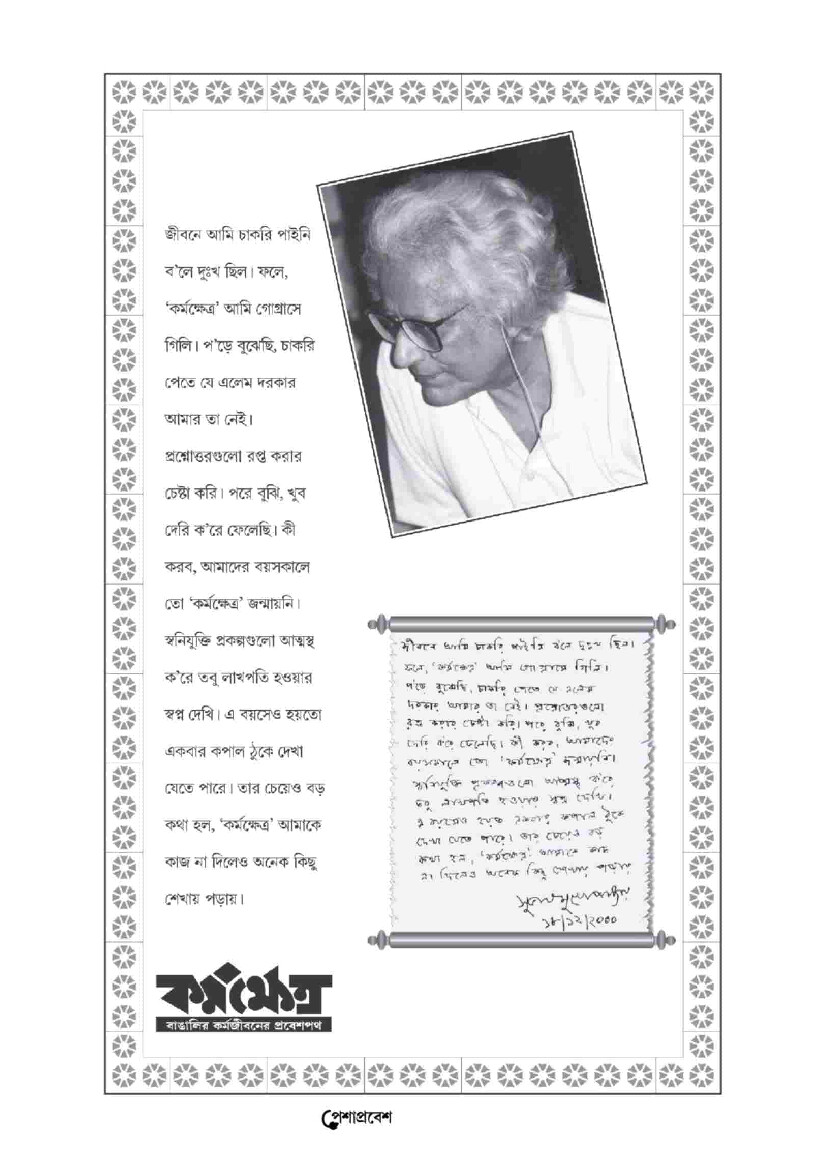 জীবনে আমি চাকরি পাইনি
ব'লে দুঃখ ছিল। ফলে,
'কর্মক্ষেত্র' আমি গোগ্রাসে
গিলি। প'ড়ে বুঝেছি, চাকরি
পেতে যে এলেম দরকার
আমার তা নেই।
প্রশ্নোত্তরগুলো রপ্ত করার
চেষ্টা করি। পরে বুঝি, খুব
দেরি ক'রে ফেলেছি। কী
করব, আমাদের বয়সকালে
তো 'কর্মক্ষেত্র' জন্মায়নি।
স্বনিযুক্তি প্রকল্পগুলো আত্মস্থ
ক'রে তবু লাখপতি হওয়ার
স্বপ্ন দেখি। এ বয়সেও হয়তো
একবার কপাল ঠুকে দেখা
যেতে পারে। তার চেয়েও বড়
কথা হল, 'কর্মক্ষেত্র' আমাকে
কাজ না দিলেও অনেক কিছু
শেখায় পড়ায়।
জীবনে আমি চাকরি পাইনি ব'লে দুঃখ ছিল।
ফলে, 'কর্মক্ষেত্র' আমি গোগ্রাসে গিলি।
প'ড়ে বুঝেছি, চাকরি পেতে যে এলেম
দরকার আমার তা নেই। প্রশ্নোত্তরগুলো
রপ্ত করার চেষ্টা করি। পরে বুঝি, খুব
দেরি ক'রে ফেলেছি। কী করব, আমাদের
বয়সকালে তো 'কর্মক্ষেত্র' জন্মায়নি।
স্বনিযুক্তি প্রকল্পগুলো আত্মস্থ ক'রে
তবু লাখপতি হওয়ার স্বপ্ন দেখি।
এ বয়সেও হয়ত একবার কপাল ঠুকে
দেখা যেতে পারে। তার চেয়েও বড়
কথা হল, 'কর্মক্ষেত্র' আমাকে কাজ
না দিলেও অনেক কিছু শেখায় পড়ায়
সুভাষ মুখোপাধ্যায়
১৮/১২/২০০০
কর্মক্ষেত্র
বাঙালির কর্মজীবনের প্রবেশপথ
পেশাপ্রবেশ